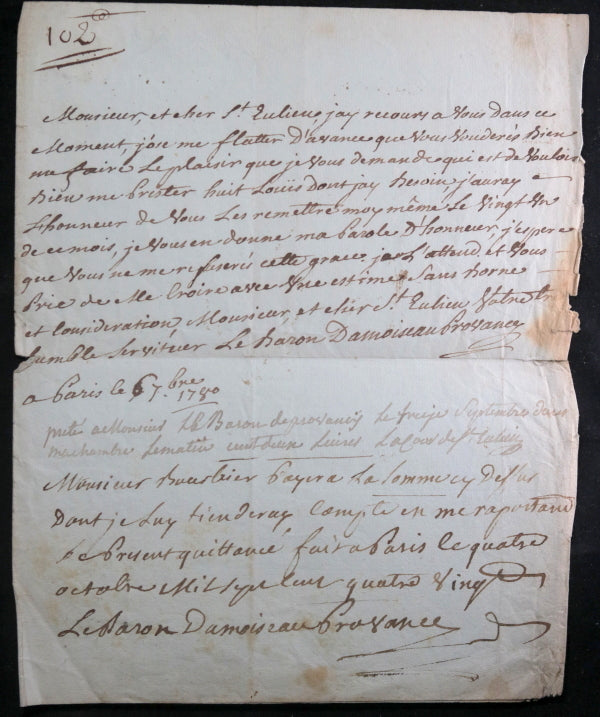 102
Monsieur, et cher St Eulieu, jay recours a Vous dans ce
Moment, jose me flatter D'avance que Vous Vouderés Bien
me faire Le plaisir que je Vous demande qui est de Vouloir
Bien me Prister huit Louïs dont jay Besoin j'auray
L'honneur de Vous Les remettre moy même Le Vingt Un
de ce mois, je Vous en donne ma Parole D'honneur, j'espere
que Vous ne me refuserés cette grace je L'attend et Vous
Prie de Me Croire avec Une estime Sans Borne
et Consideration Monsieur, et cher St Eulieu Votre
humble Serviteur Le Baron Damoiseau Provance
a Paris le 6 7.bre 1780
preté a Monsieur LE Baron de provance le Septembre dans
ma chambre Le matin cent deux Livres La Cour de St Eulieu
Monsieur Payera La Somme Cy Dessus
Dont je Luy tienderay Compte en me raportand
Le Present quittancé fait a Paris le quatre
octobre Mil Sept Cent quatre Vingt
Le Baron Damoiseau Provance